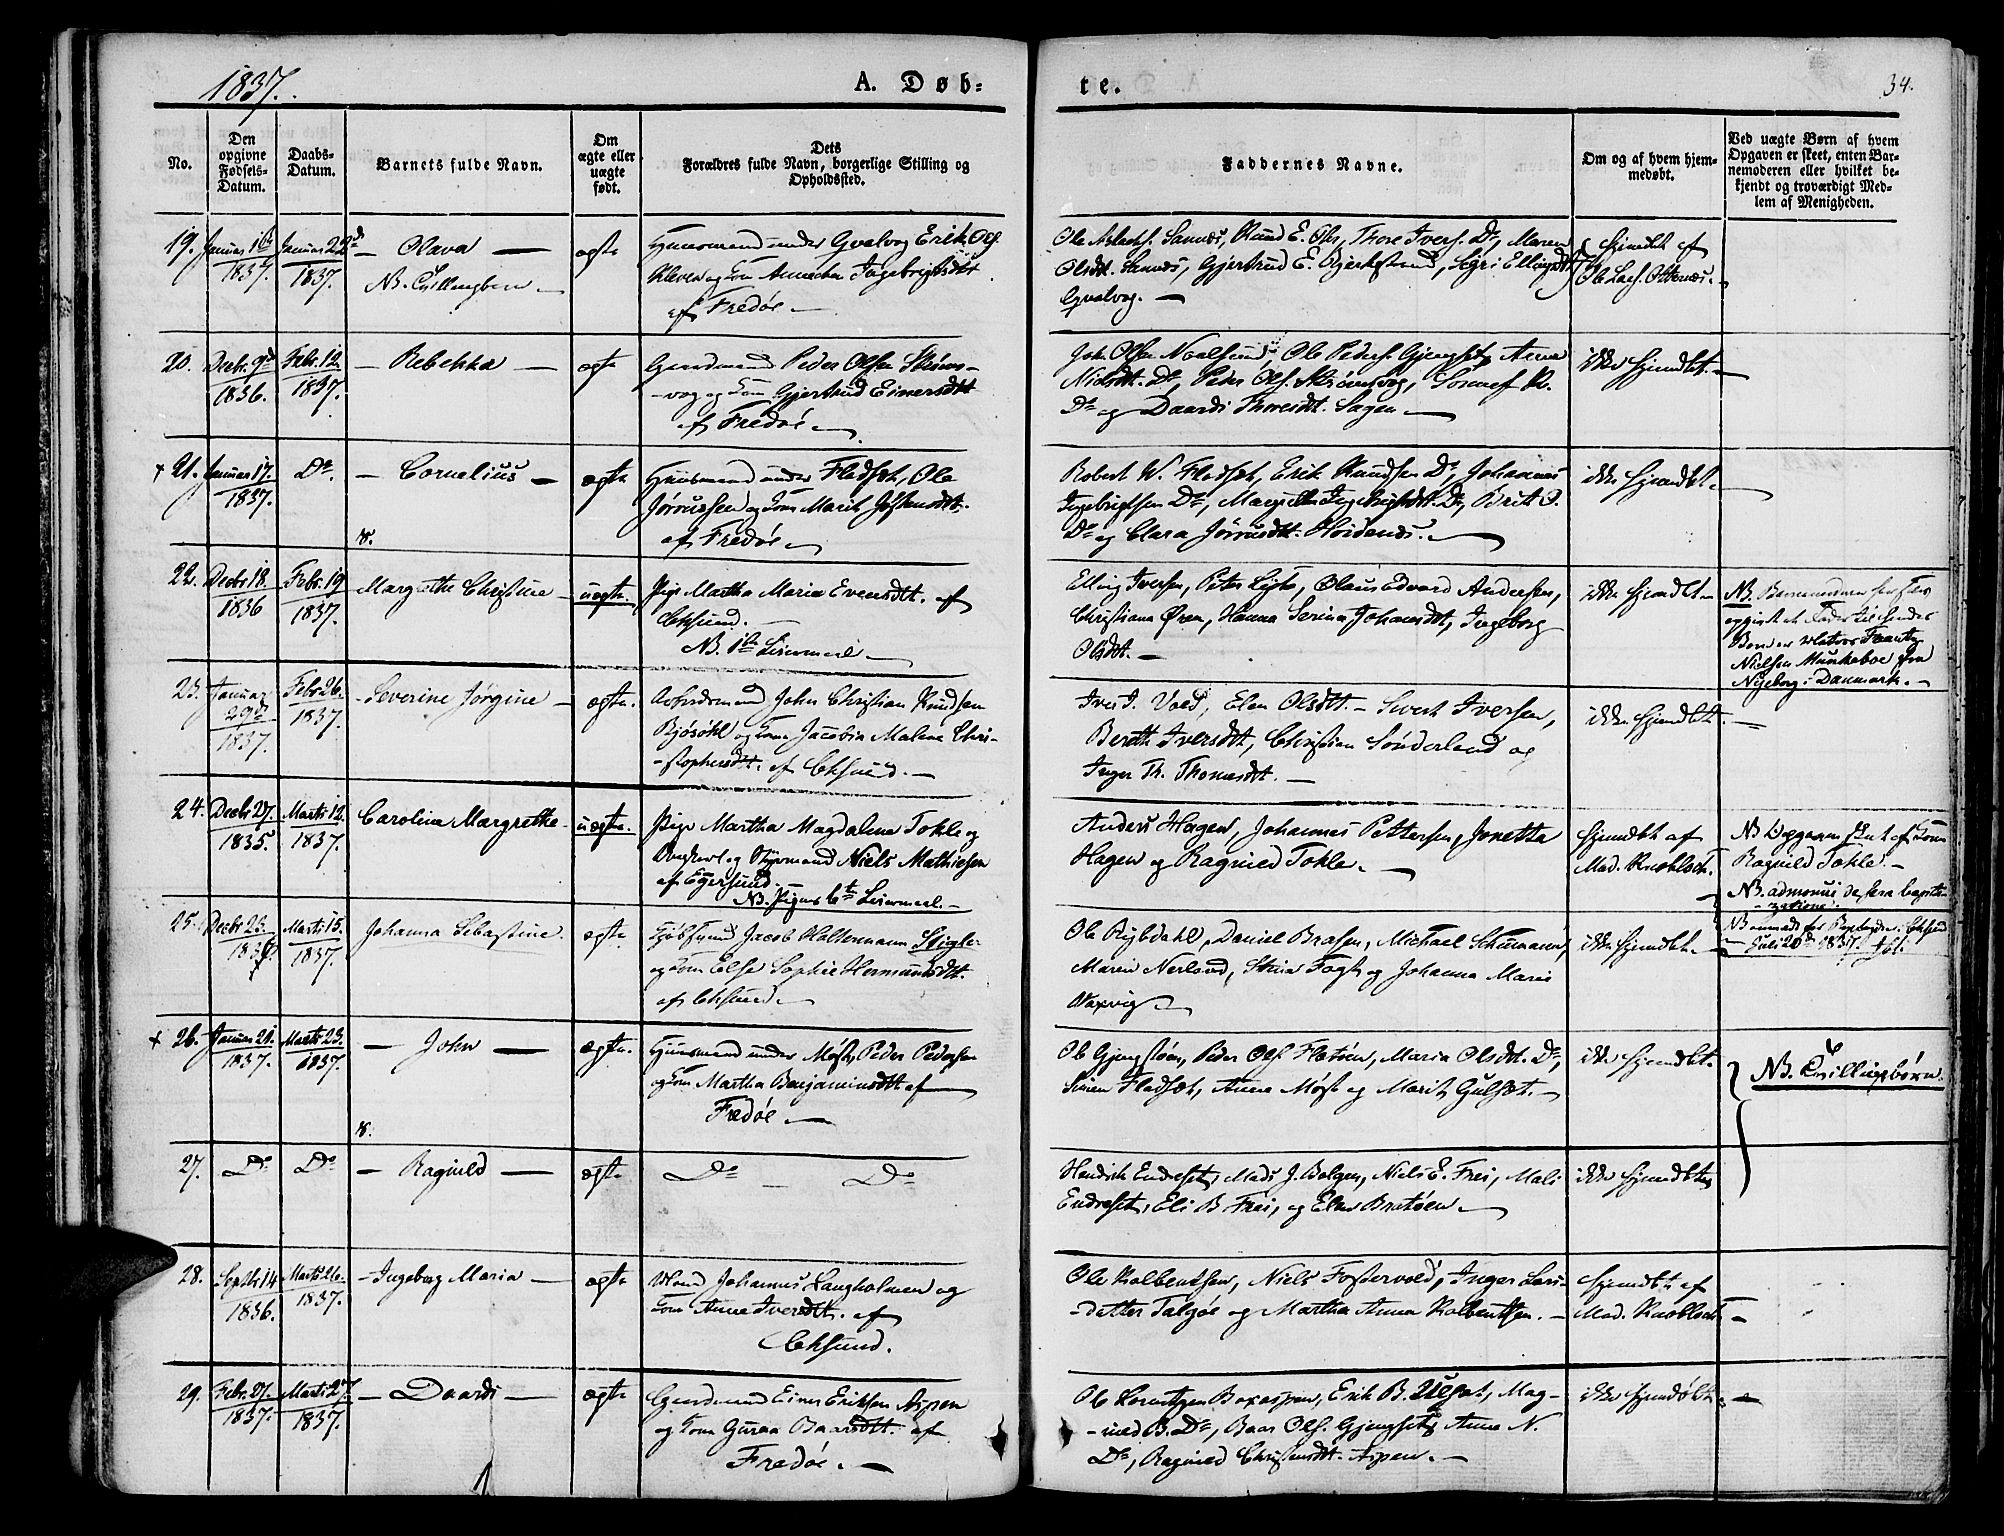 1837.
A. Døb-
te.
34.
No.
Den
opgivne
Fødsels-
Datum.
Daabs-
Datum.
Barnets fulde Navn.
Om
ægte eller
uægte
født.
Dets
Forældres fulde Navn, borgerlige Stilling og
Opholdssted.
Faddernes Navne.
Om og af hvem hjem-
medøbt.
Ved uægte Børn af hvem
Opgaven er skeet, enten Bar-
nemoderen eller hvilket be-
kjendt og troværdigt Med-
lem af Menigheden.
19.
1837.
1837.
Olava
NB. Tvillingbarn
ægte
Huusmand under Gvalvog Erik Ols.
Kleven og Kone Anne Ingebrigtsdtt
af Fredøe
Ole Sannæs, Knud E. Thore Ivers. Do, Maren
Olsdtt. Sannæs, Gjertrud E. Bjerkestrand, Sigri Ellingsdtt
Gvalvog.
hjemdbt af
20.
Decbr. 9de
1836.
Febr. 12
1837.
Rebekka
ægte
Gaardmand Peder Olsen Strøms-
vog og Kone Gjertrud Einersdtt
af Fredøe
John Olsen Ole Peders. Gjengset, Anne
Nielsdtt. Do, Peder Ols. Strømsvog,
Do og Daardi Thoresdtt. Sagen
ikke hjemdbt.
21.
Januar 17.
1837.
Do.
Cornelius
ægte
Huusmand under Fladset, Ole
Jørnussen og Kone Marit Jostensdtt.
af Fredøe
Robert W. Fladset, Erik Knudsen Do, Johannes
Ingebrigtsen Do, Ingebrigtsdtt. Do, Brit
Do og Clara Jørnusdtt. Hoidenæs.
ikke hjemdbt.
22.
Decbr 18.
1836
Febr. 19
1837.
Margrethe Christine
uægte.
Pige Martha Maria Evensdtt. af
Chsund.
NB. 1te Leiermaal
Elling Iversen, Peter Olaus Edvard Andersen,
Christiana Øren, Hanna Serina Johansdtt, Ingeborg
Olsdtt.
ikke hjemdbt
NB. Barnemoderen
opgivet at Fader til hendes
Barn er Matros
Nielsen Munkeboe fra
Nyeborg i Danmark.
23.
Januar
29de
1837.
Febr 26.
1837.
Severine Jørgine
ægte.
Arbeidsmand John Christian Knudsen
og Kone Jacobia Malene Chri-
stophersdtt. af Chsund.
Iver I. Vold, Elen Olsdtt. Sivert Iversen,
Bereth Iversdtt, Christian Sønderland og
Inger Th. Thomasdtt.
ikke hjemdbt.
24.
Decbr 27.
1835.
Marts 12.
1837.
Carolina Margrethe
uægte.
Pige Martha Magdalena Tokle og
Ungkarl og Styrmand Niels Mathiesen
af Egersund
NB. Pigens 1te Leiermaal.
Anders Hagen, Johannes Pettersen, Jonetta
Hagen og Ragnild Tokle.
hjemdbt af
Mad. Knoblock.
NB Opgaven skeet af Kone
Ragnild Tokle.
25.
Decbr 23.
Marts 15.
1837.
Johanna Sebastine
ægte
Jacob Holtermann
og Kone Else Sophie Hermansdtt.
af Chsund
Ole Rybdahl, Daniel Brasen, Michael Schumann,
Maren Nerland, Stina Fogt og Johanna Maria
Waxvig
ikke hjemdbt.
Juli 20de 1837.
26.
Januar 21.
1837.
Marts 23.
1837.
John
ægte.
Huusmand under Møst, Peder Pedersen
og Kone Martha Benjaminsdtt af
Fredøe
Ole Gjengstøen, Peder Ols. Fladset, Maria Olsdtt. Do,
Simen Fladset, Anna Møst og Marit Gulset.
ikke hjemdbt.
NB. Tvillingbørn.
27.
Do
Do
Ragnild
ægte
Do
Do
Hendrik Endreset, Mads J. Bolgen, Niels E. Frei, Mali
Endreset, Eli B Frei, og Elen Bratøen
ikke hjemdbt
28.
Septbr 14
1836.
Marts 26.
1837.
Ingeborg Maria
ægte
Johannes Langholmen og
Kone Anne Iversdtt. af
Chsund.
Ole Kolbentsen, Niels Fostervold, Inger Lars-
datter Talgøe og Martha Anna Kolbentsen.
hjemdbt af
Mad. Knoblock
29.
Febr. 27.
1837.
Marts 27.
1837.
Daardi
ægte
Gaardmand Einer Eriksen Aspen
og Kone Guraa Baarsdtt. af
Fredøe.
Ole Erik B. Mag-
nild B. Do, Baar Ols. Gjengset, Anne N.
Do, Ragnild Christensdtt. Aspen.
ikke hjemdøbt